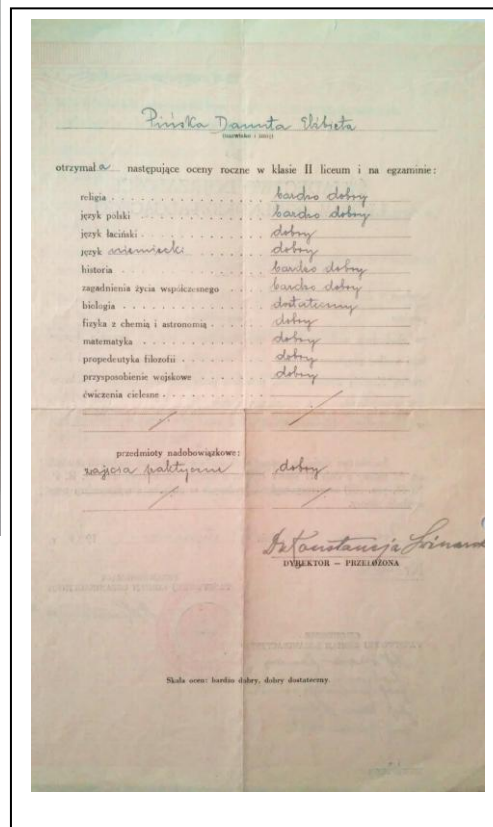 Pińska Danuta Elżbieta
(nazwisko i imię)
otrzymała następujące oceny roczne w klasie II liceum i na egzaminie:
religia . . . . . . . . . . . . . bardzo dobry
język polski . . . . . . . . . . bardzo dobry
język łaciński . . . . . . . . . dobry
język niemiecki . . . . . . . . dobry
historia . . . . . . . . . . . . bardzo dobry
zagadnienia życia współczesnego . . . . bardzo dobry
biologia . . . . . . . . . . . . dostateczny
fizyka z chemią i astronomią . . . . dobry
matematyka . . . . . . . . . . . dobry
propedeutyka filozofii . . . . . . dobry
przysposobienie wojskowe . . . . . dobry
ćwiczenia cielesne . . . . . . . .
przedmioty nadobowiązkowe:
zajęcia paktyczne dobry
Dr Konstancja
DYREKTOR — PRZEŁOŻONA
Skala ocen: bardzo dobry, dobry dostateczny.